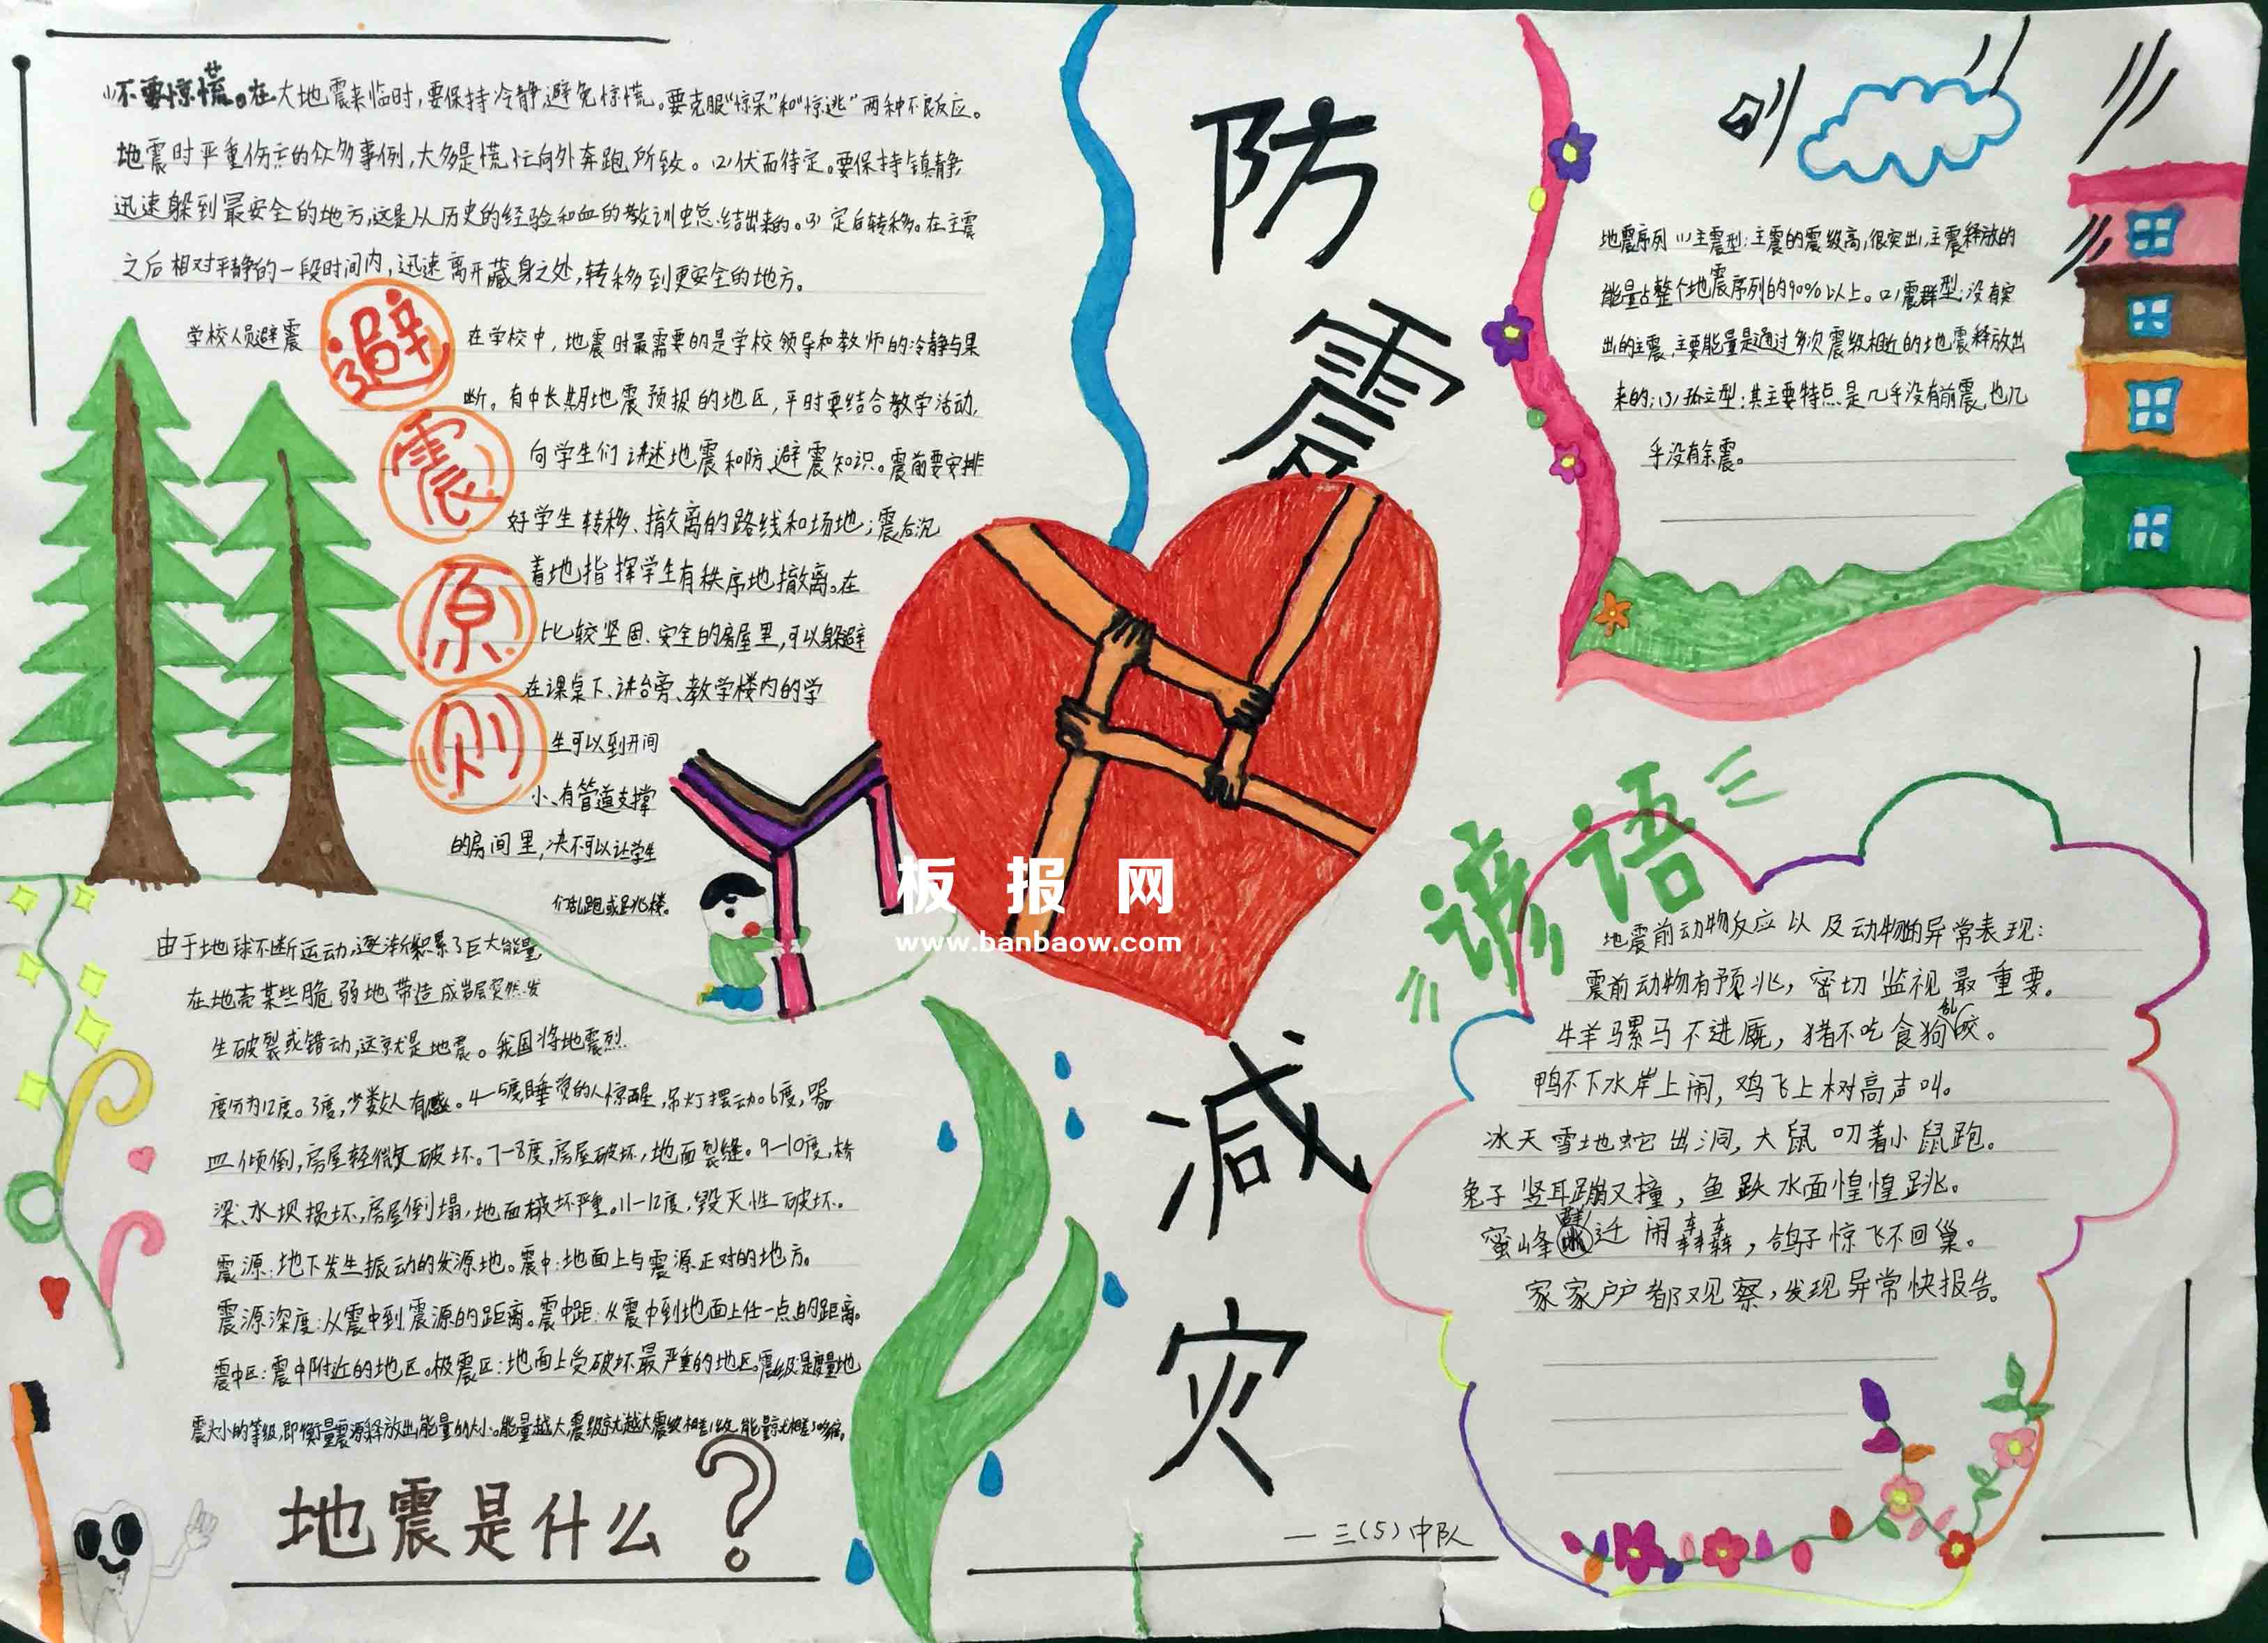 防震减灾
(1)不要惊慌。在大地震来临时,要保持冷静,避免惊慌。要克服“惊呆”和“惊逃”两种不良反应。
地震时严重伤亡的众多事例,大多是慌忙向外奔跑所致。(2)伏而待定。要保持镇静,
迅速躲到最安全的地方,这是从历史的经验和血的教训中总结出来的。(3)定后转移。在主震
之后相对平静的一段时间内,迅速离开藏身之处,转移到更安全的地方。
避震原则
学校人员避震 在学校中,地震时最需要的是学校领导和教师的冷静与果
断。有中长期地震预报的地区,平时要结合教学活动,
向学生们讲述地震和防、避震知识。震前要安排
好学生转移、撤离的路线和场地;震后沉
着地指挥学生有秩序地撤离。在
比较坚固、安全的房屋里,可以躲避
在课桌下、讲台旁、教学楼内的学
生可以到开间
小、有管道支撑
的房间里,决不可以让学生
们乱跑或是跳楼。
由于地球不断运动,逐渐积累了巨大能量,
在地壳某些脆弱地带造成岩层突然发
生破裂或错动,这就是地震。我国将地震烈
度分为12度。3度,少数人有感。4—5度,睡觉的人惊醒,吊灯摆动。6度,器
皿倾倒,房屋轻微破坏。7—8度,房屋破坏,地面裂缝。9—10度,桥
梁、水坝损坏,房屋倒塌,地面破坏严重。11—12度,毁灭性破坏。
震源:地下发生振动的发源地。震中:地面上与震源正对的地方。
震源深度:从震中到震源的距离。震中距:从震中到地面上任一点的距离。
震中区:震中附近的地区。极震区:地面上受破坏最严重的地区。震级是度量地
震大小的等级,即衡量震源释放出能量的大小。能量越大,震级就越大
地震是什么?
地震序列 (1)主震型:主震的震级高,很突出,主震释放的
能量占整个地震序列的90%以上。(2)震群型:没有突
出的主震,主要能量是通过多次震级相近的地震释放出
来的;(3)孤立型:其主要特点是几乎没有前震,也几
乎没有余震。
谚语
地震前动物反应以及动物的异常表现:
震前动物有预兆,密切监视最重要。
牛羊骡马不进厩,猪不吃食狗乱咬。
鸭不下水岸上闹,鸡飞上树高声叫。
冰天雪地蛇出洞,大鼠叼着小鼠跑。
兔子竖耳蹦又撞,鱼跃水面惶惶跳。
蜜峰群迁闹轰轰,鸽子惊飞不回巢。
家家户户都观察,发现异常快报告。
—三(5)中队
板报网
www.banbaow.com